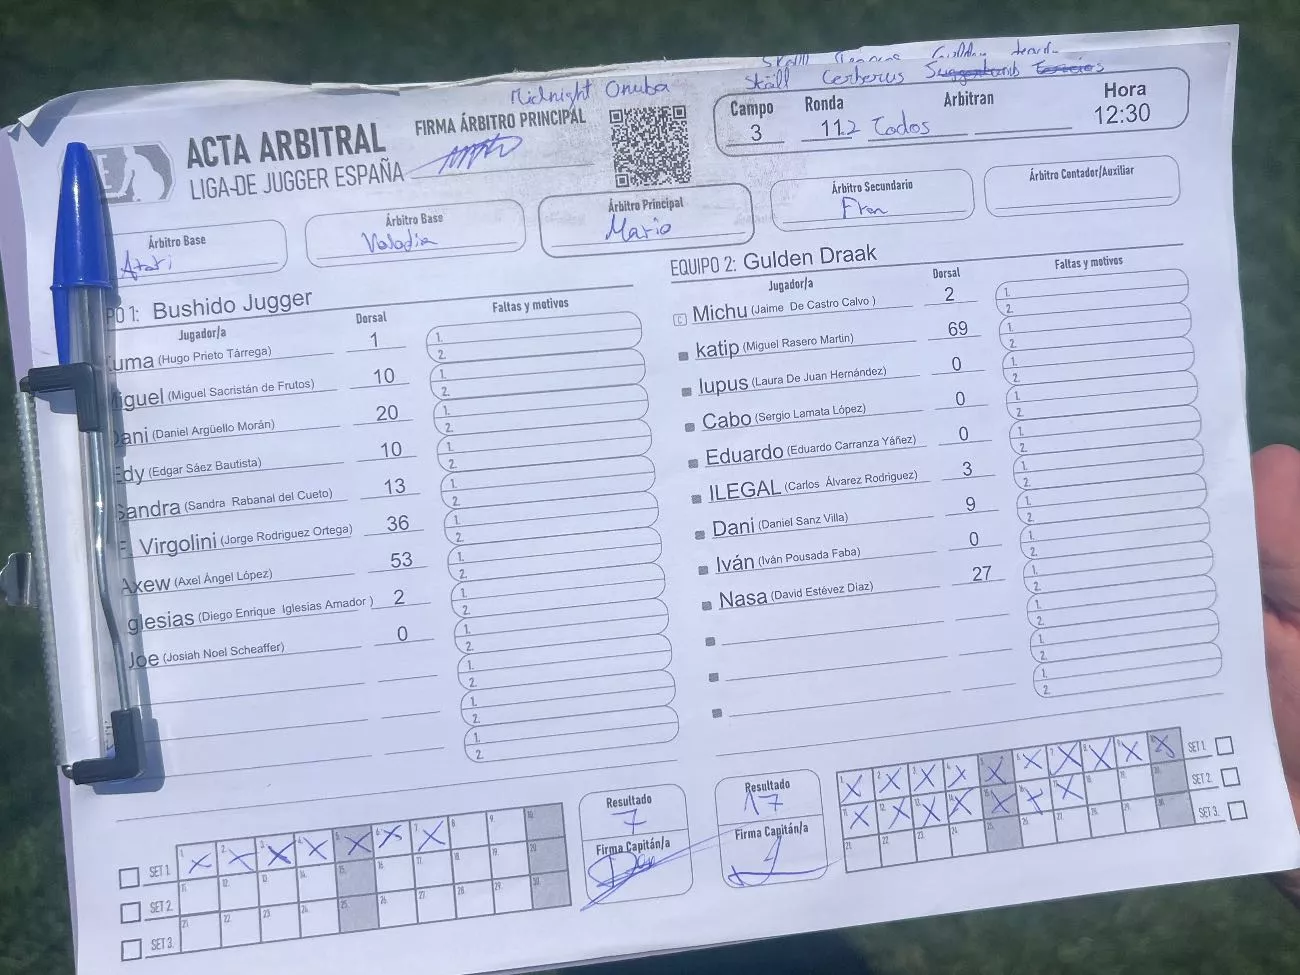 Midnight Onuba
Ställ Cerberus
ACTA ARBITRAL
LIGA DE JUGGER ESPAÑA
FIRMA ÁRBITRO PRINCIPAL
Campo
3
Ronda
11.2
Arbitran
Todos
Hora
12:30
Árbitro Base
Atari
Árbitro Base
Árbitro Principal
Mario
Árbitro Secundario
Fran
Árbitro Contador/Auxiliar
PO 1: Bushido Jugger
Jugador/a Dorsal Faltas y motivos
uma (Hugo Prieto Tárrega) 1 1. 2.
iguel (Miguel Sacristán de Frutos) 10 1. 2.
ani (Daniel Argüello Morán) 20 1. 2.
Edy (Edgar Sáez Bautista) 10 1. 2.
Sandra (Sandra Rabanal del Cueto) 13 1. 2.
F. Virgolini (Jorge Rodriguez Ortega) 36 1. 2.
Axew (Axel Ángel López) 53 1. 2.
glesias (Diego Enrique Iglesias Amador ) 2 1. 2.
Joe (Josiah Noel Scheaffer) 0 1. 2.
1. 2.
1. 2.
1. 2.
EQUIPO 2: Gulden Draak
Jugador/a Dorsal Faltas y motivos
C Michu (Jaime De Castro Calvo ) 2 1. 2.
katip (Miguel Rasero Martin) 69 1. 2.
lupus (Laura De Juan Hernández) 0 1. 2.
Cabo (Sergio Lamata López) 0 1. 2.
Eduardo (Eduardo Carranza Yáñez) 0 1. 2.
ILEGAL (Carlos Álvarez Rodriguez) 3 1. 2.
Dani (Daniel Sanz Villa) 9 1. 2.
Iván (Iván Pousada Faba) 0 1. 2.
Nasa (David Estévez Diaz) 27 1. 2.
1. 2.
1. 2.
1. 2.
SET 1. 1. 2. 3. 4. 5. 6. 7. 8. 9. 10.
SET 2. 11. 12. 13. 14. 15. 16. 17. 18. 19. 20.
SET 3. 21. 22. 23. 24. 25. 26. 27. 28. 29. 30.
Resultado
7
Firma Capitán/a
Resultado
17
Firma Capitán/a
1. 2. 3. 4. 5. 6. 7. 8. 9. 10. SET 1.
11. 12. 13. 14. 15. 16. 17. 18. 19. 20. SET 2.
21. 22. 23. 24. 25. 26. 27. 28. 29. 30. SET 3.